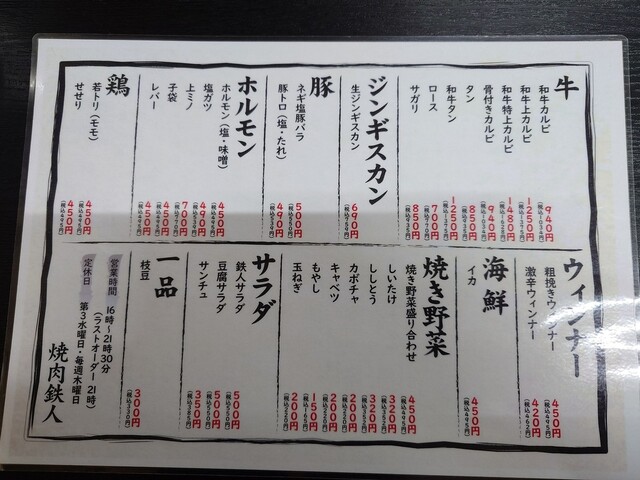 牛
和牛カルビ 940円 (税込1034円)
和牛上カルビ 1250円 (税込1375円)
和牛特上カルビ 1480円
骨付きカルビ 940円 (税込1034円)
タン 850円 (税込935円)
和牛タン 1250円 (税込1375円)
ロース 700円 (税込770円)
サガリ 850円 (税込935円)
ジンギスカン
生ジンギスカン 690円 (税込759円)
豚
ネギ塩豚バラ 500円 (税込550円)
豚トロ(塩・たれ) 490円 (税込539円)
ホルモン
ホルモン(塩・味噌) 450円 (税込495円)
塩ガツ 490円 (税込539円)
上ミノ 700円 (税込770円)
子袋 450円 (税込495円)
レバー 450円 (税込495円)
鶏
若トリ(モモ) 450円 (税込495円)
せせり 450円 (税込495円)
ウィンナー
粗挽きウィンナー 450円 (税込495円)
激辛ウィンナー 420円 (税込462円)
海鮮
イカ 450円 (税込495円)
焼き野菜
焼き野菜盛り合わせ 450円 (税込495円)
しいたけ
ししとう 320円
カボチャ 200円 (税込220円)
キャベツ 200円 (税込220円)
もやし 150円 (税込165円)
玉ねぎ 200円 (税込220円)
サラダ
鉄人サラダ 500円 (税込550円)
豆腐サラダ 500円 (税込550円)
サンチュ 350円 (税込385円)
一品
枝豆 300円 (税込330円)
営業時間 16時~21時30分
(ラストオーダー21時)
定休日 第3水曜日・毎週木曜日
焼肉鉄人